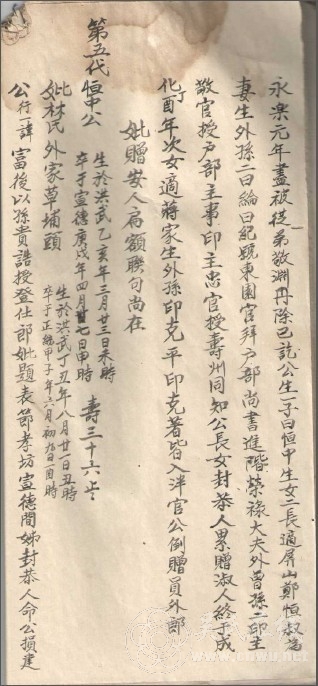 永樂元年盡被從弟敬淵再除已訖公生一子曰恒中生女二長適屏山鄭恒叔為
妻生外孫二曰綸曰紀號東園官拜户部尚書進階榮祿大夫外曾孫二印主
敬官授户部主事印主忠官授壽州同知公長女封恭人累贈淑人終于成
化丁酉年次女適蔣家生外孫印克平印克著皆入泮官公例贈員外郎
妣贈安人扁額聯句尚在
第五代恒中公 生於洪武乙亥年三月廿三日未時
卒于宣德庚戌年四月廿七日申時 壽三十六歲
妣林氏外家草埔頭 生於洪武丁丑年八月廿一日丑時
卒于正統甲子年六月初九日酉時
公行一諱富後以孫貴誥授登仕郎妣題表節孝坊宣德間姊封恭人命公損建